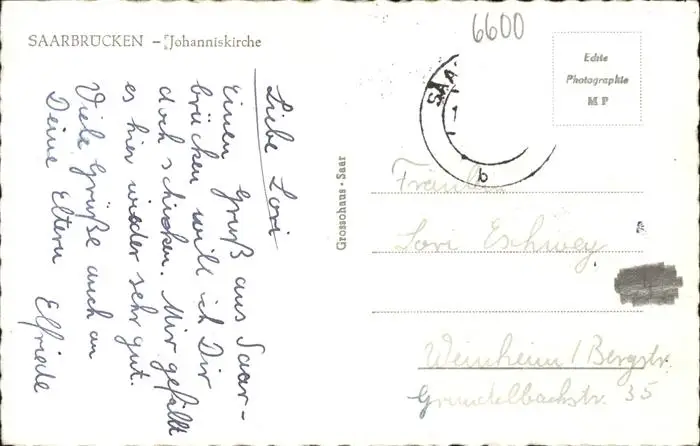 6600
SAARBRÜCKEN – Johanniskirche
Echte
Photographie
M P
SAA
b
Liebe Lori
Einen Gruß aus Saar-
brücken will ich Dir
doch schicken. Mir gefällt
es hier wieder sehr gut.
Viele Grüße auch an
Deine Eltern Elfriede
Grossohaus - Saar
Fräulein
Lori Eschwey
Weinheim / Bergstr.
Grundelbachstr. 35